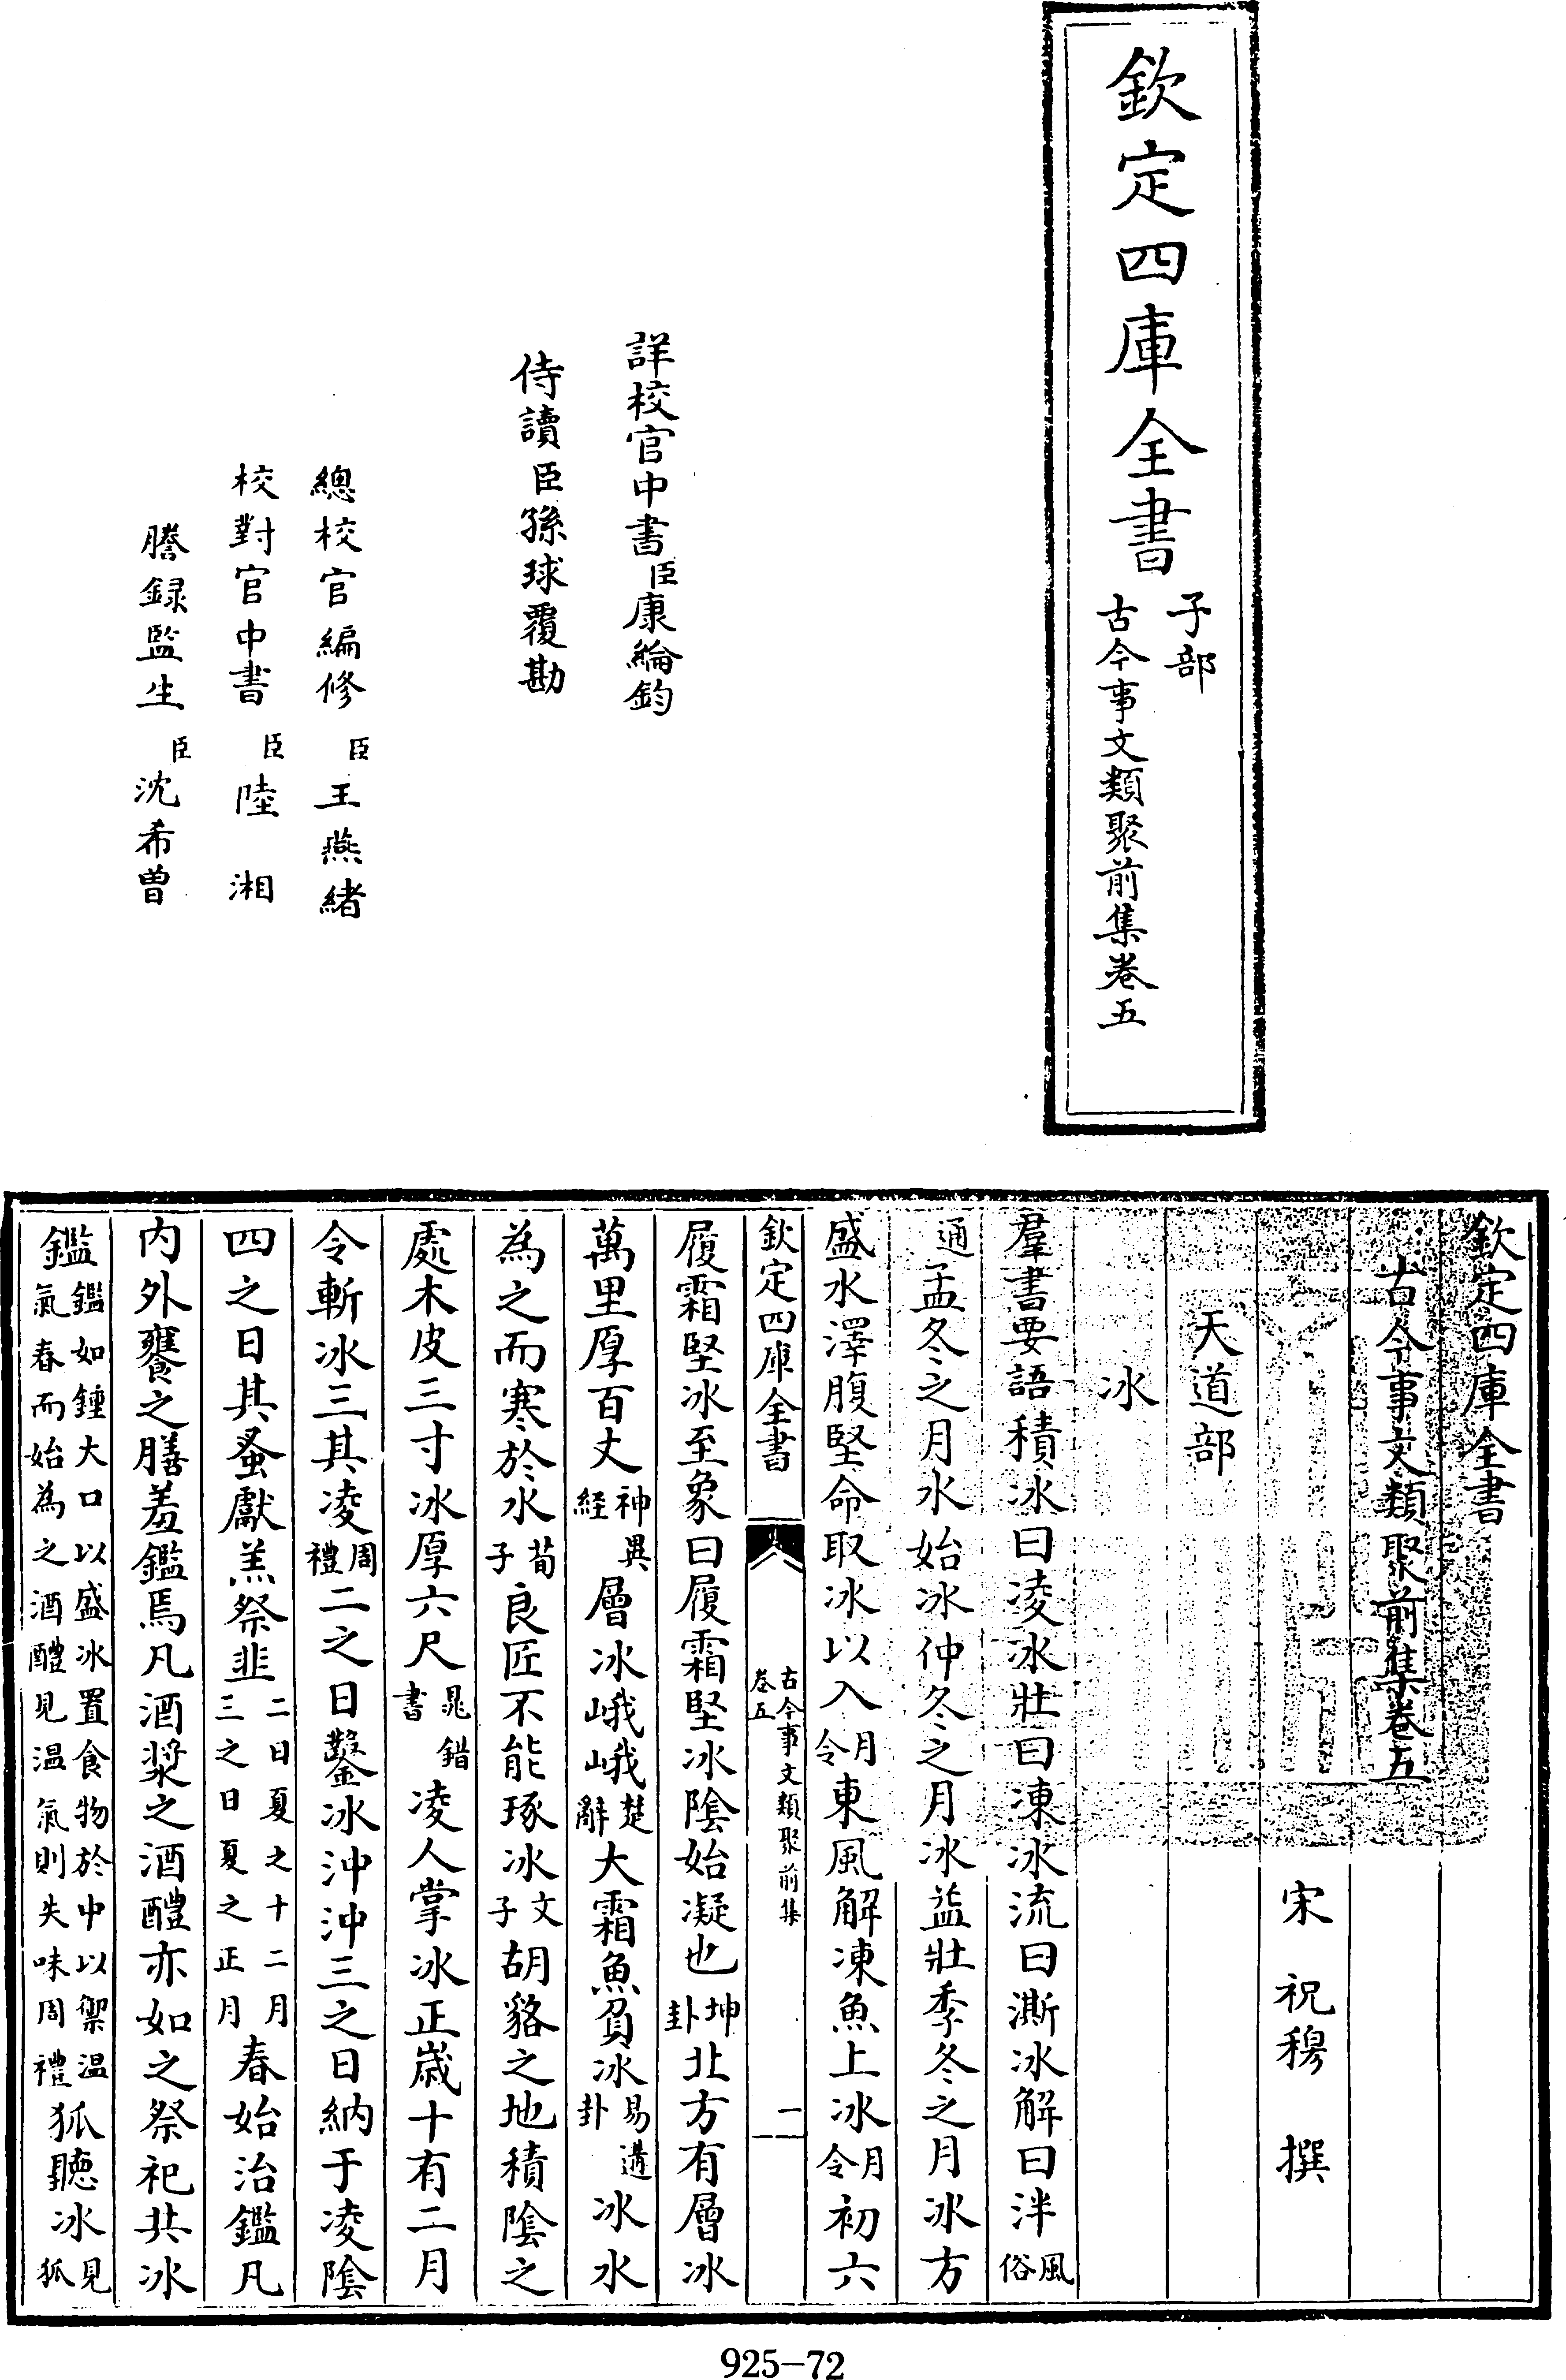 欽定四庫全書
子部
古今事文類聚前集卷五
詳校官中書臣康綸鈞
侍讀臣孫球覆勘
總校官編修臣王燕緒
校對官中書臣陸湘
謄録監生臣沈希曾
欽定四庫全書
古今事文類聚前集卷五
宋 祝穆 撰
天道部
冰
羣書要語積冰曰凌冰壯曰凍冰流曰澌冰解曰泮風俗
通孟冬之月水始冰仲冬之月冰益壯季冬之月冰方
盛水澤腹堅命取冰以入月令東風解凍魚上冰月令初六
欽定四庫全書
古今事文類聚前集
卷五
一
履霜堅冰至象曰履霜堅冰陰始凝也坤卦北方有層冰
萬里厚百丈神異經層冰峨峨楚辭大霜魚負冰易遘卦冰水
為之而寒於水荀子良匠不能琢冰文子胡貉之地積陰之
處木皮三寸冰厚六尺晁錯書凌人掌冰正歲十有二月
令斬冰三其凌周禮二之日鑿冰沖沖三之日納于凌陰
四之日其蚤獻羔祭韭二日夏之十二月三之日夏之正月春始治鑑凡
内外饔之膳羞鑑焉凡酒漿之酒醴亦如之祭祀共冰
鑑鑑如鍾大口以盛冰置食物於中以禦温氣春而始為之酒醴見温氣則失味周禮狐聽冰見狐
925-72